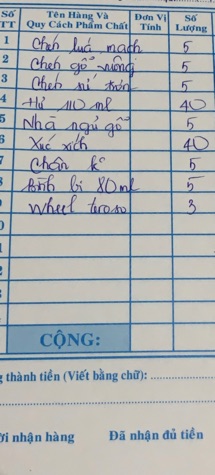 Số TT Tên Hàng Và Quy Cách Phẩm Chất Đơn Vị Tính Số Lượng
1 Chén lúa mạch 5
2 Chén gỗ vuông 5
3 Chén sứ tròn 5
4 Hủ 110 ml 40
5 Nhà ngủ gỗ 5
6 Xúc xích 40
Chân k° 5
Bình bi 80ml 5
Wheel 3
CỘNG:
thành tiền (Viết bằng chữ):
nhận hàng Đã nhận đủ tiền